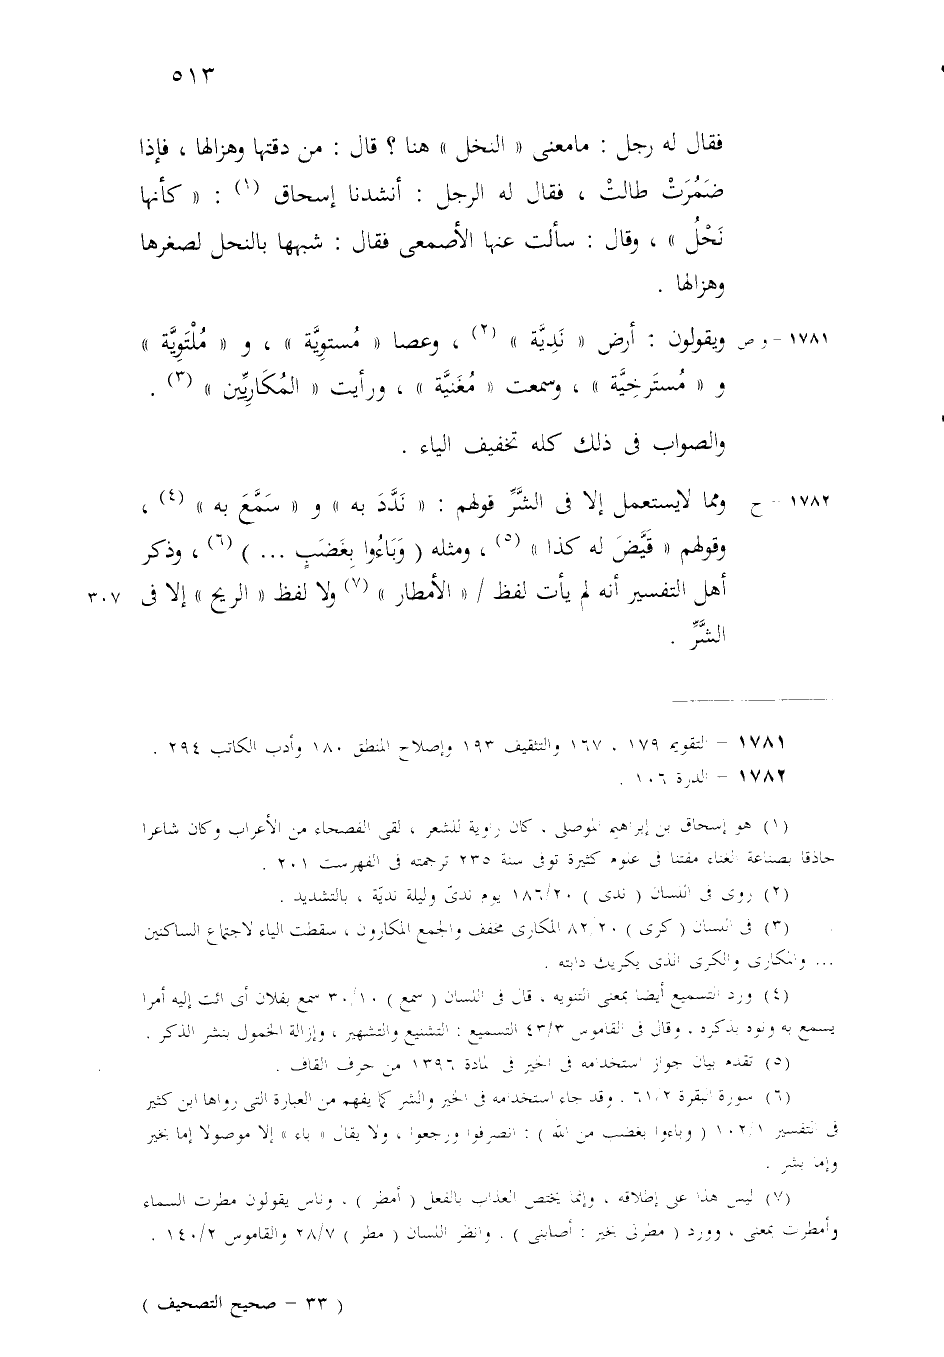 ٥١٣
فقال له رجل : مامعنى « النخل » هنا ؟ قال : من دقتها وهزالها ، فإذا
ضَمُرَتْ طالتْ ، فقال له الرجل : أنشدنا إسحاق (١) : « كأنها
نَحْلُ » ، وقال : سألت عنها الأصمعى فقال : شبهها بالنحل لصغرها
وهزالها .
١٧٨١ - و ص ويقولون : أرض « نَدِيَّة » (٢) ، وعصا « مُستوِيَّة » ، و « مُلْتَوِيَّة »
و « مُسترخِيَّة » ، وسمعت « مُغَنيَّة » ، ورأيت « المُكَارِيِّين » (٣) .
والصواب فى ذلك كله تخفيف الياء .
١٧٨٢ - ح ومما لايستعمل إلا فى الشَّرِّ قولهم : « نَدَّدَ به » و « سَمَّعَ به » (٤) ،
وقولهم « قَيَّضَ له كذا » (٥) ، ومثله ( وَبَاءُوا بِغَضَبٍ ... ) (٦) ، وذكر
أهل التفسير أنه لم يأت لفظ / « الأمطار » (٧) ولا لفظ « الريح » إلا فى ٣٠٧
الشَّرِّ .
١٧٨١ - التقويم ١٧٩ ، ١٦٧ والتثقيف ١٩٣ وإصلاح المنطق ١٨٠ وأدب الكاتب ٢٩٤ .
١٧٨٢ - الدرة ١٠٦ .
(١) هو إسحاق بن إبراهيم الموصلى ، كان راوية للشعر ، لقى الفصحاء من الأعراب وكان شاعرا
حاذقا بصناعة الغناء مفتنا فى علوم كثيرة توفى سنة ٢٣٥ ترجمته فى الفهرست ٢٠١ .
(٢) روى فى اللسان ( ندى ) ١٨٦/٢٠ يوم ندىّ وليلة نديّة ، بالتشديد .
(٣) فى اللسان ( كرى ) ٨٢/٢٠ المكارى مخفف والجمع المكارون ، سقطت الياء لاجتماع الساكنين
... والمكارى والكرى الذى يكريك دابته .
(٤) ورد التسميع أيضا بمعنى التنويه ، قال فى اللسان ( سمع ) ٣٠/١٠ سمع بفلان أى ائت إليه أمرا
يسمع به ونوه بذكره . وقال فى القاموس ٤٣/٣ التسميع : التشنيع والتشهير ، وإزالة الخمول بنشر الذكر .
(٥) تقدم بيان جواز استخدامه فى الخير فى المادة ١٣٩٦ من حرف القاف .
(٦) سورة البقرة ٦١/٢ . وقد جاء استخدامه فى الخير والشر كما يفهم من العبارة التى رواها ابن كثير
فى التفسير ١٠٢/١ ( وباءوا بغضب من الله ) : انصرفوا ورجعوا ، ولا يقال « باء » إلا موصولا إما بخير
وإما بشر .
(٧) ليس هذا على إطلاقه ، وإنما يختص العذاب بالفعل ( أمطر ) ، وناس يقولون مطرت السماء
وأمطرت بمعنى ، وورد ( مطرنى بخير : أصابنى ) . وانظر اللسان ( مطر ) ٢٨/٧ والقاموس ١٤٠/٢ .
( ٣٣ - صحيح التصحيف )